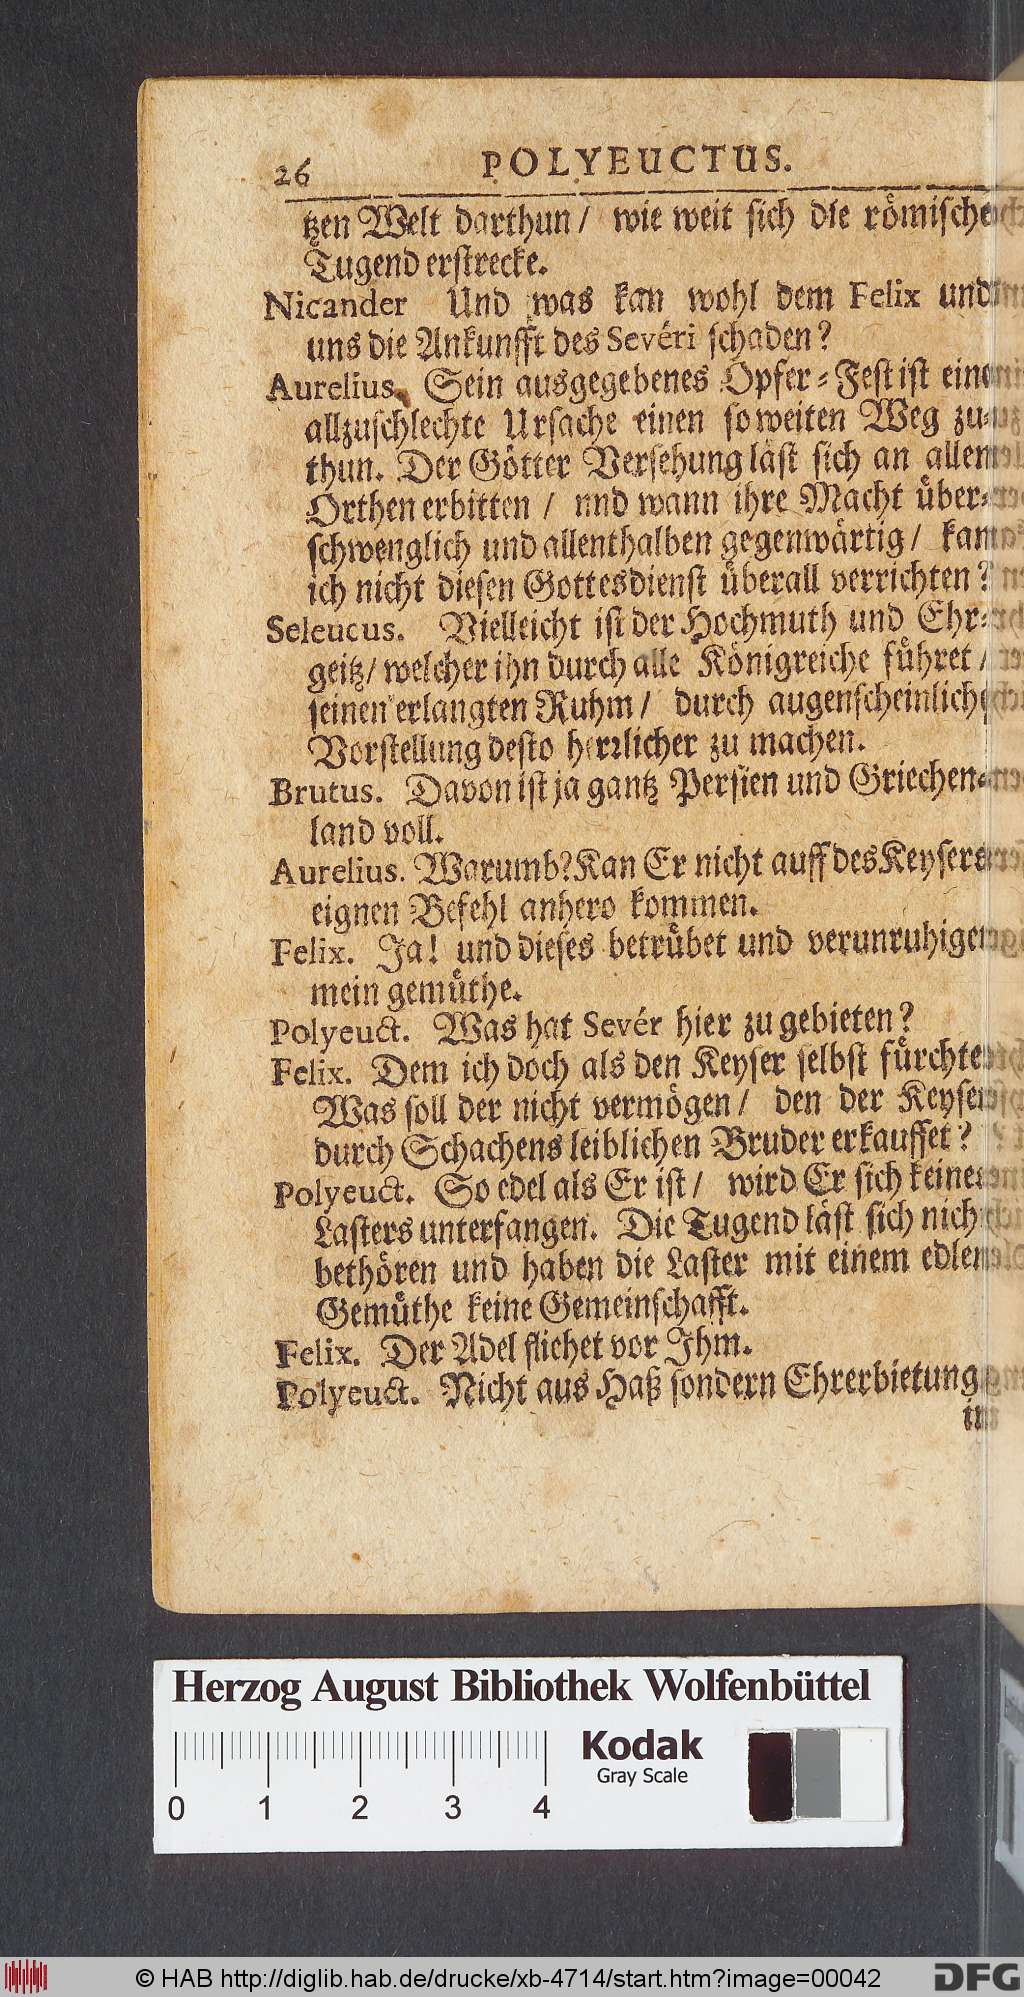 26 POLYEUCTUS.
tzen Welt darthun / wie weit sich die römische
Tugend erstrecke.
Nicander Und was kan wohl dem Felix und
uns die Ankunfft des Sevéri schaden?
Aurelius. Sein ausgegebenes Opfer-Fest ist eine
allzuschlechte Ursache einen so weiten Weg zu-
thun. Der Götter Versehung läst sich an allen
Orthen erbitten / nnd wann ihre Macht über-
schwenglich und allenthalben gegenwärtig / kan
ich nicht diesen Gottesdienst überall verrichten?
Seleucus. Vielleicht ist der Hochmuth und Ehr-
geitz / welcher ihn durch alle Königreiche führet /
seinen erlangten Ruhm / durch augenscheinliche
Vorstellung desto herrlicher zu machen.
Brutus. Davon ist ja gantz Persien und Griechen-
land voll.
Aurelius. Warumb? Kan Er nicht auff des Keysers
eignen Befehl anhero kommen.
Felix. Ja! und dieses betrübet und verunruhiget
mein gemüthe.
Polyeuct. Was hat Sevér hier zu gebieten?
Felix. Dem ich doch als den Keyser selbst fürchte
Was soll der nicht vermögen / den der Keyser
durch Schachens leiblichen Bruder erkauffet?
Polyeuct. So edel als Er ist / wird Er sich keines
Lasters unterfangen. Die Tugend läst sich nicht
bethören und haben die Laster mit einem edlen
Gemüthe keine Gemeinschafft.
Felix. Der Adel fliehet vor Ihm.
Polyeuct. Nicht aus Haß sondern Ehrerbietung
im
Herzog August Bibliothek Wolfenbüttel
0 1 2 3 4
Kodak
Gray Scale
© HAB http://diglib.hab.de/drucke/xb-4714/start.htm?image=00042
DFG